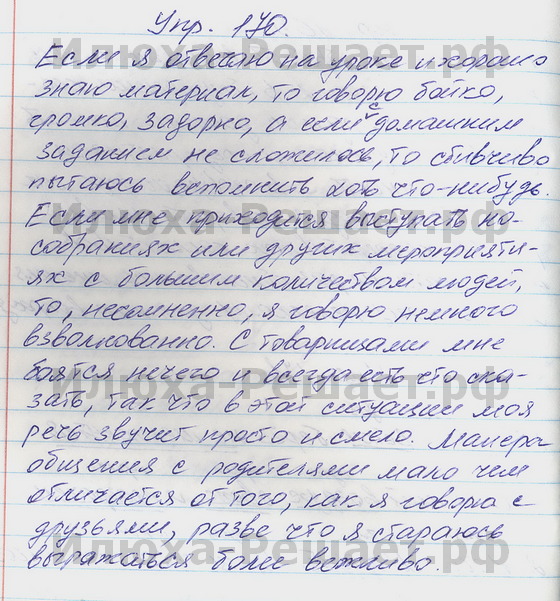 Упр. 170.
Если я отвечаю на уроке и хорошо
знаю материал, то говорю бойко,
громко, задорно, а если с домашним
заданием не сложилось, то сбивчиво
пытаюсь вспомнить хоть что-нибудь.
Если мне приходится выступать на
собраниях или других мероприяти-
ях с большим количеством людей,
то, несомненно, я говорю немного
взволнованно. С товарищами мне
боятся нечего и всегда есть что ска-
зать, так что в этой ситуации моя
речь звучит просто и смело. Манера
общения с родителями мало чем
отличается от того, как я говорю с
друзьями, разве что я стараюсь
выражаться более вежливо.
Илюха-Решает.рф
Илюха-Решает.рф
Илюха-Решает.рф
Илюха-Решает.рф
Илюха-Решает.рф